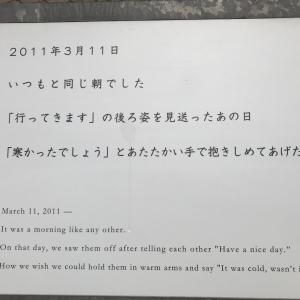 ２０１１年３月１１日
いつもと同じ朝でした
「行ってきます」の後ろ姿を見送ったあの日
「寒かったでしょう」とあたたかい手で抱きしめてあげた
March 11, 2011 —
It was a morning like any other.
On that day, we saw them off after telling each other "Have a nice day."
How we wish we could hold them in warm arms and say "It was cold, wasn't i